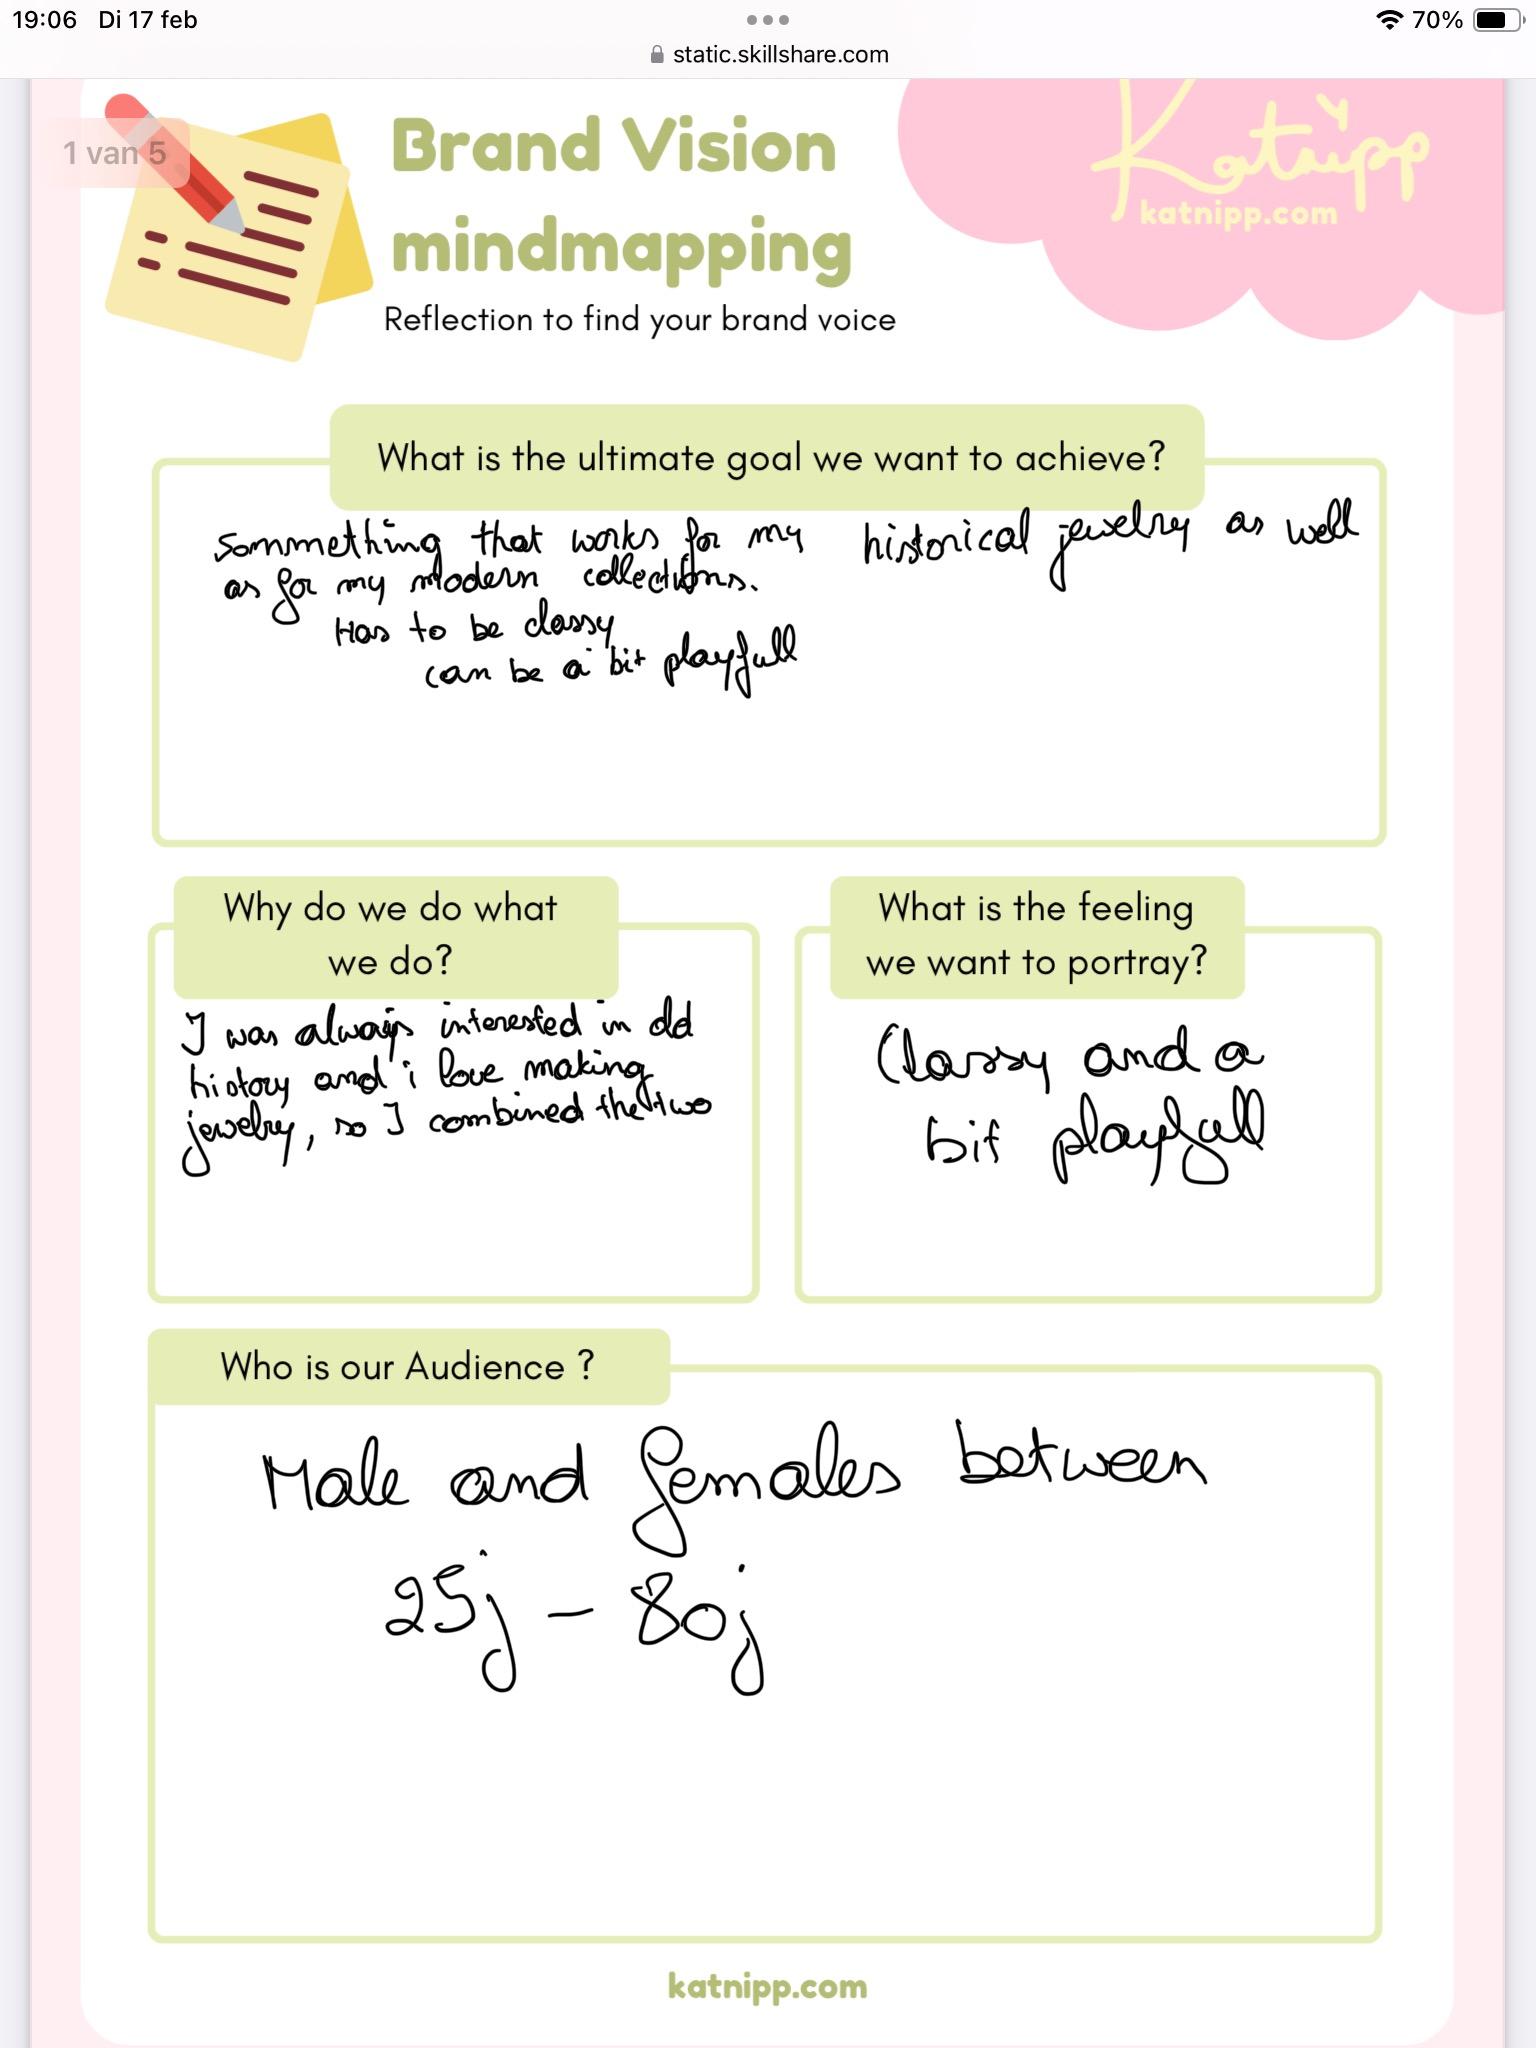 19:06 Di 17 feb 70%
static.skillshare.com
1 van 5
Brand Vision
mindmapping
Reflection to find your brand voice
Katnipp
katnipp.com
What is the ultimate goal we want to achieve?
Sommething that works for my historical jewelry as well
as for my modern collections.
Has to be classy
can be a bit playfull
Why do we do what
we do?
I was always interested in old
history and i love making
jewelry, so I combined the two
What is the feeling
we want to portray?
Classy and a
bit playfull
Who is our Audience ?
Male and females between
25j - 80j
katnipp.com